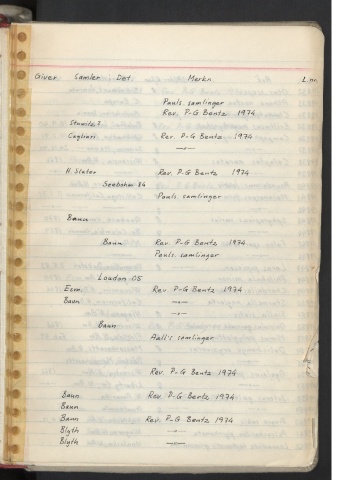 Giver Samler Det. Merkn L.nr
Pauls samlinger
Rev. P-G Bentz 1974
Staudo?
Cagliari Rev. P-G Bentz 1974
—"—
H. Slater Rev. P-G Bentz 1974
Seebohm 84
Pauls samlinger
Baun
Baun Rev. P-G Bentz 1974
Pauls samlinger
Loudon 05
Esm. Rev. P-G Bentz 1974
Baun —"—
—"—
Baun
Aall's samlinger
Rev. P-G Bentz 1974
Baun Rev. P-G Bentz 1974
Baun
Baun Rev. P-G Bentz 1974
Blyth —"—
Blyth —"—